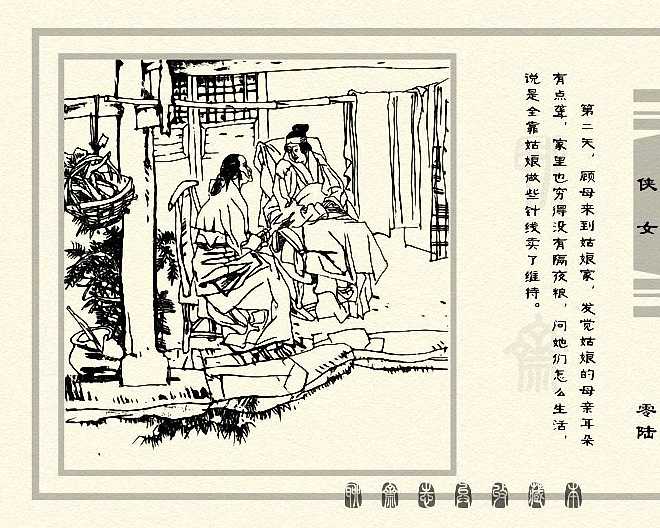 第二天，顾母来到姑娘家，发觉姑娘的母亲耳朵
有点聋，家里也穷得没有隔夜粮，问她们怎么生活，
说是全靠姑娘做些针线卖了维持。
侠女
零陆
聊斋志异收藏本